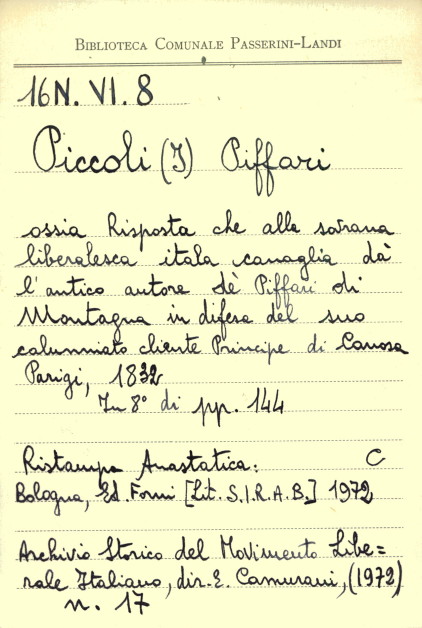 BIBLIOTECA COMUNALE PASSERINI-LANDI
16N. VI. 8
Piccoli (I) Piffari
ossia Risposta che alla sovrana
liberalesca itala canaglia dà
l'antico autore de' Piffari di
Montagna in difesa del suo
calunniato cliente Principe di Canosa
Parigi, 1832
In 8° di pp. 144
Ristampa Anastatica: C
Bologna, Ed. Forni [Lit. S.I.R.A.B.] 1972
Archivio Storico del Movimento Libe=
rale Italiano, dir. E. Camurani, (1972)
n. 17